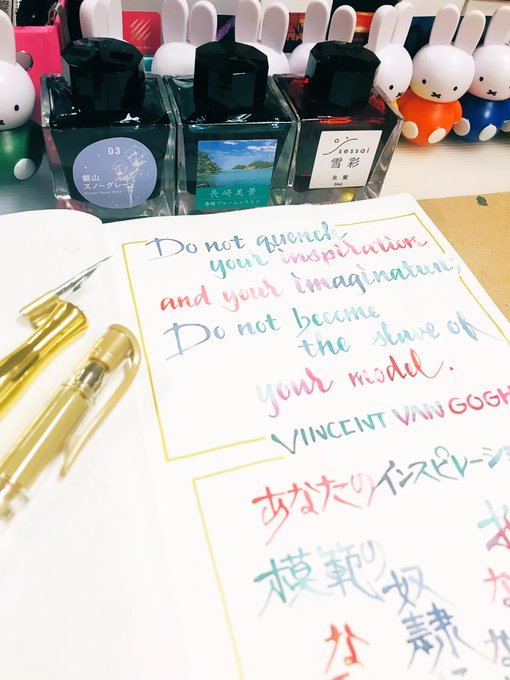 03
銀山
スノーグレー
長崎美景
壱岐ブルーエメラルド
sessai
雪彩
Do not quench
your inspiration
and your imagination;
Do not become
the slave of
your model.
VINCENT VAN GOGH
あなたのインスピレーショ
模範の奴隷
な